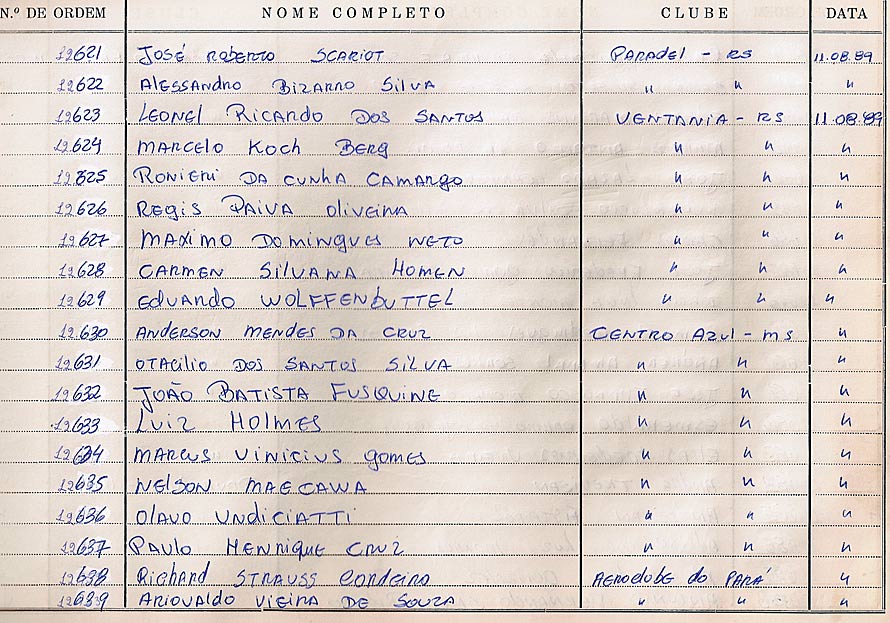 N.º DE ORDEM NOME COMPLETO CLUBE DATA
12621 José Roberto Scariot Paradel - RS 11.08.89
12622 Alessandro Bizarro Silva " " "
12623 Leonel Ricardo dos Santos Ventania - RS 11.08.89
12624 Marcelo Koch Berg " " "
12625 Ronieri da Cunha Camargo " " "
12626 Regis Paiva Oliveira " " "
12627 Maximo Domingues Neto " " "
12628 Carmen Silvana Homen " " "
12629 Eduardo Wolffenbuttel " " "
12630 Anderson Mendes da Cruz Centro Azul - MS "
12631 Otacilio dos Santos Silva " " "
12632 João Batista Fusquine " " "
12633 Luiz Holmes " " "
12634 Marcus Vinicius Gomes " " "
12635 Nelson Maecawa " " "
12636 Olavo Undiciatti " " "
12637 Paulo Henrique Cruz " " "
12638 Richard Strauss Cordeiro Aeroclube do Pará "
12639 Ariovaldo Vieira de Souza " " "